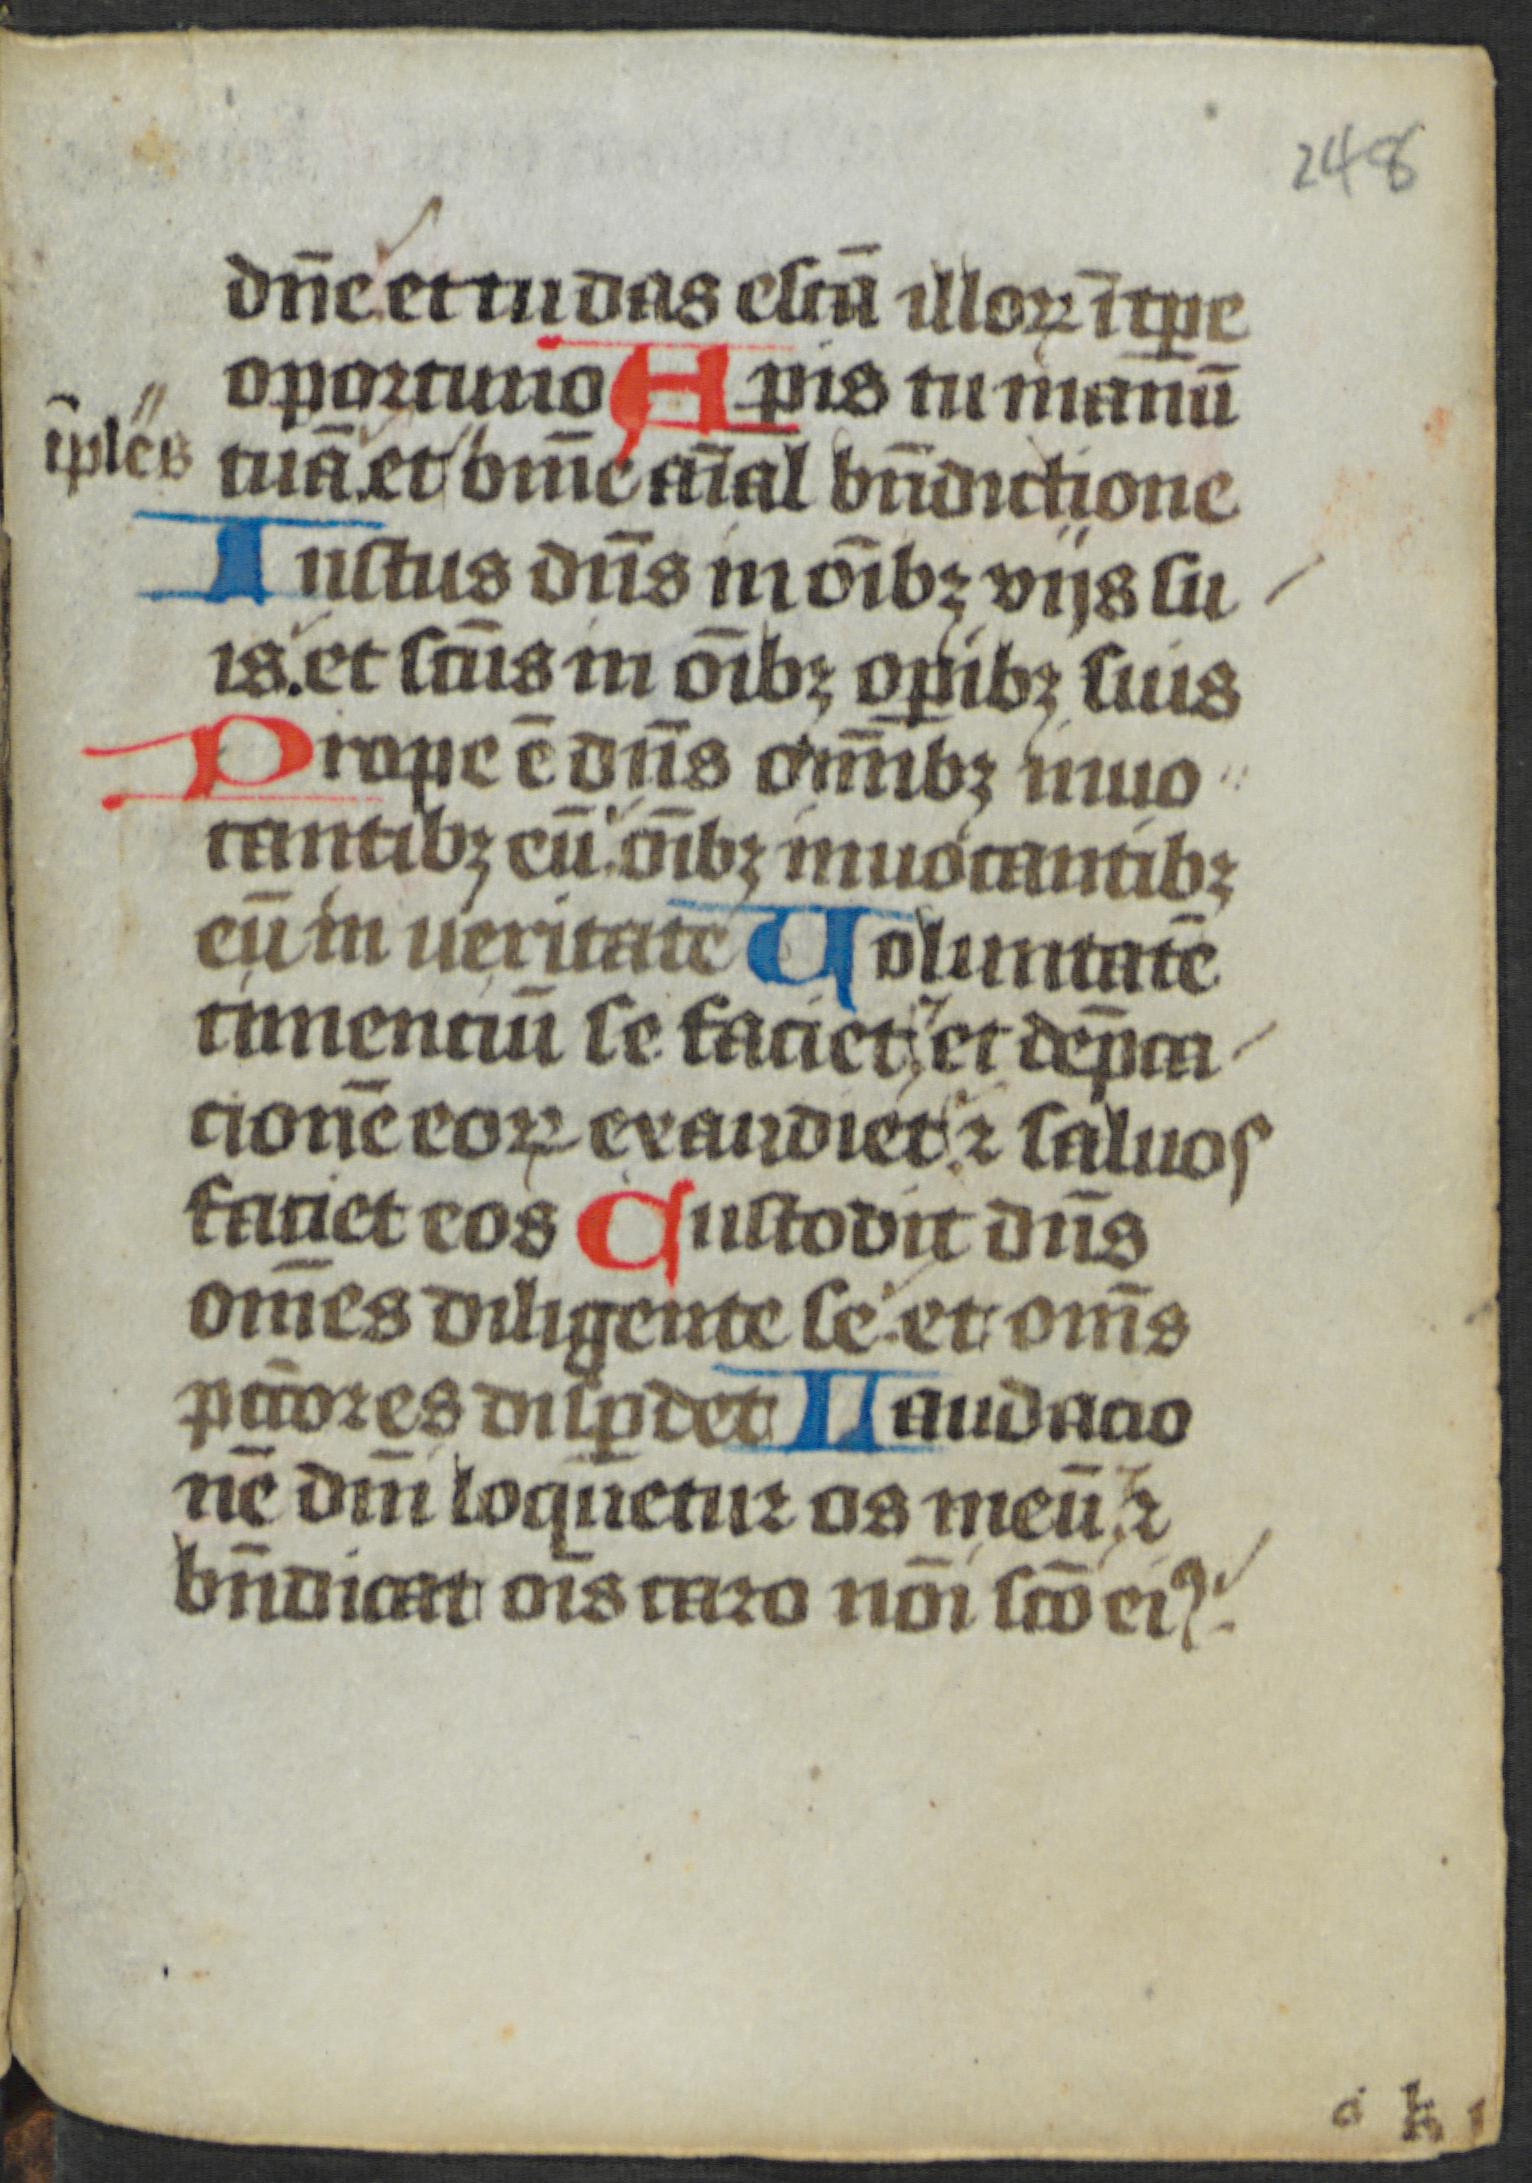 248
dn̄e et tu das escā illoꝝ ī tp̄e
oportuno Ap̲is tu manū
īplēs
tuā. et om̄e aīal bn̄dictione
Iustus dn̄s in oībꝫ vijs su
is. et sc̄us in oībꝫ op̲ibꝫ suis
Prope ē dn̄s om̄ibꝫ inuo
cantibꝫ eū. oībꝫ inuocantibꝫ
eū in ueritate Uoluntatē
timenciū se faciet. et dep̄ca
cionē eoꝝ exaudiet ꝛ saluos
faciet eos Custodit dn̄s
om̄es diligente se. et om̄s
pc̄cores disp̲det Laudacio
nē dn̄i loq̄uetur os meū. ꝛ
bn̄dicat oīs caro noī sc̄o eiꝯ